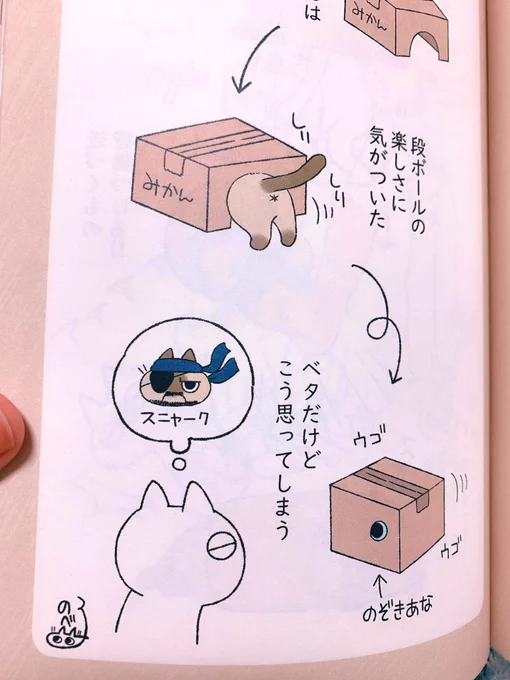 は
みかん
段ボールの
楽しさに
気がついた
しり
しり
みかん
ベタだけど
こう思ってしまう
スニャーク
ウゴ
ウゴ
のぞきあな
のべ